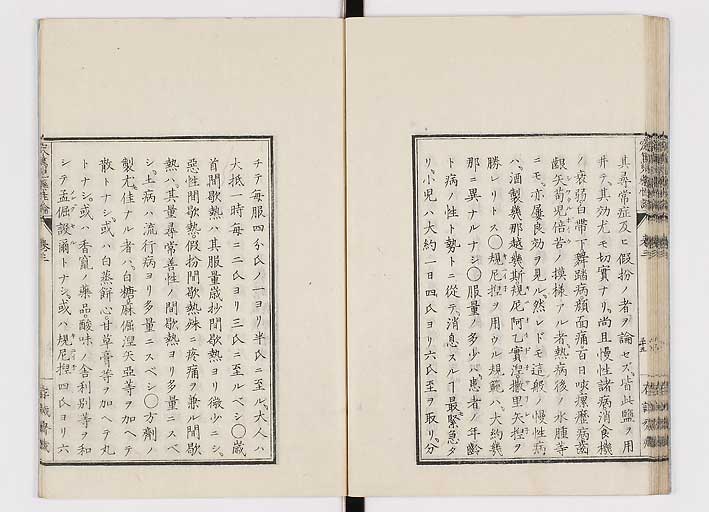 其尋常症及ヒ假扮ノ者ヲ論セズ皆此鹽ヲ用
井テ其効尤モ切實ナリ尚且慢性諸病消食機
ノ衰弱白帶下舞蹈病顏面痛百日咳瘰癧病齒
齦矢苟児倍苦ノ模様アル者熱病後ノ水腫等
ニモ亦屢良効ヲ見ル然レドモ這般ノ慢性病
ハ酒製幾那越幾斯規尼阿乙實潔撒里矢捏ヲ
勝レリトス◯規尼捏ヲ用ウル規範ハ大約幾
那ニ異ナルナシ◯服量ノ多少ハ患者ノ年齡
ト病ノ性ト勢トニ從テ消息スルヿ最緊急タ
リ小児ハ大約一日四氏ヨリ六氏至ヲ取リ分
チテ毎服四分氏ノ一ヨリ半氏ニ至ル大人ハ
大抵一時毎ニ二氏ヨリ三氏ニ至ルベシ◯歳
首間歇熱ハ其服量歳抄間歇熱ヨリ微少ニシ
惡性間歇熱假扮間歇熱殊ニ疼痛ヲ兼ル間歇
熱ハ其量尋常善性ノ間歇熱ヨリ多量ニスベ
シ上病ハ流行病ヨリ多量ニスベシ◯方劑ノ
製尤佳ナル者ハ白糖麻倔涅矢亞等ヲ加ヘテ
散トナシ或ハ白蒸餅心甘草膏等ヲ加ヘテ丸
トナシ或ハ香竄藥品酸味ノ舍利別等ヲ和
シテ孟倔設爾トナシ或ハ規尼捏四氏ヨリ六